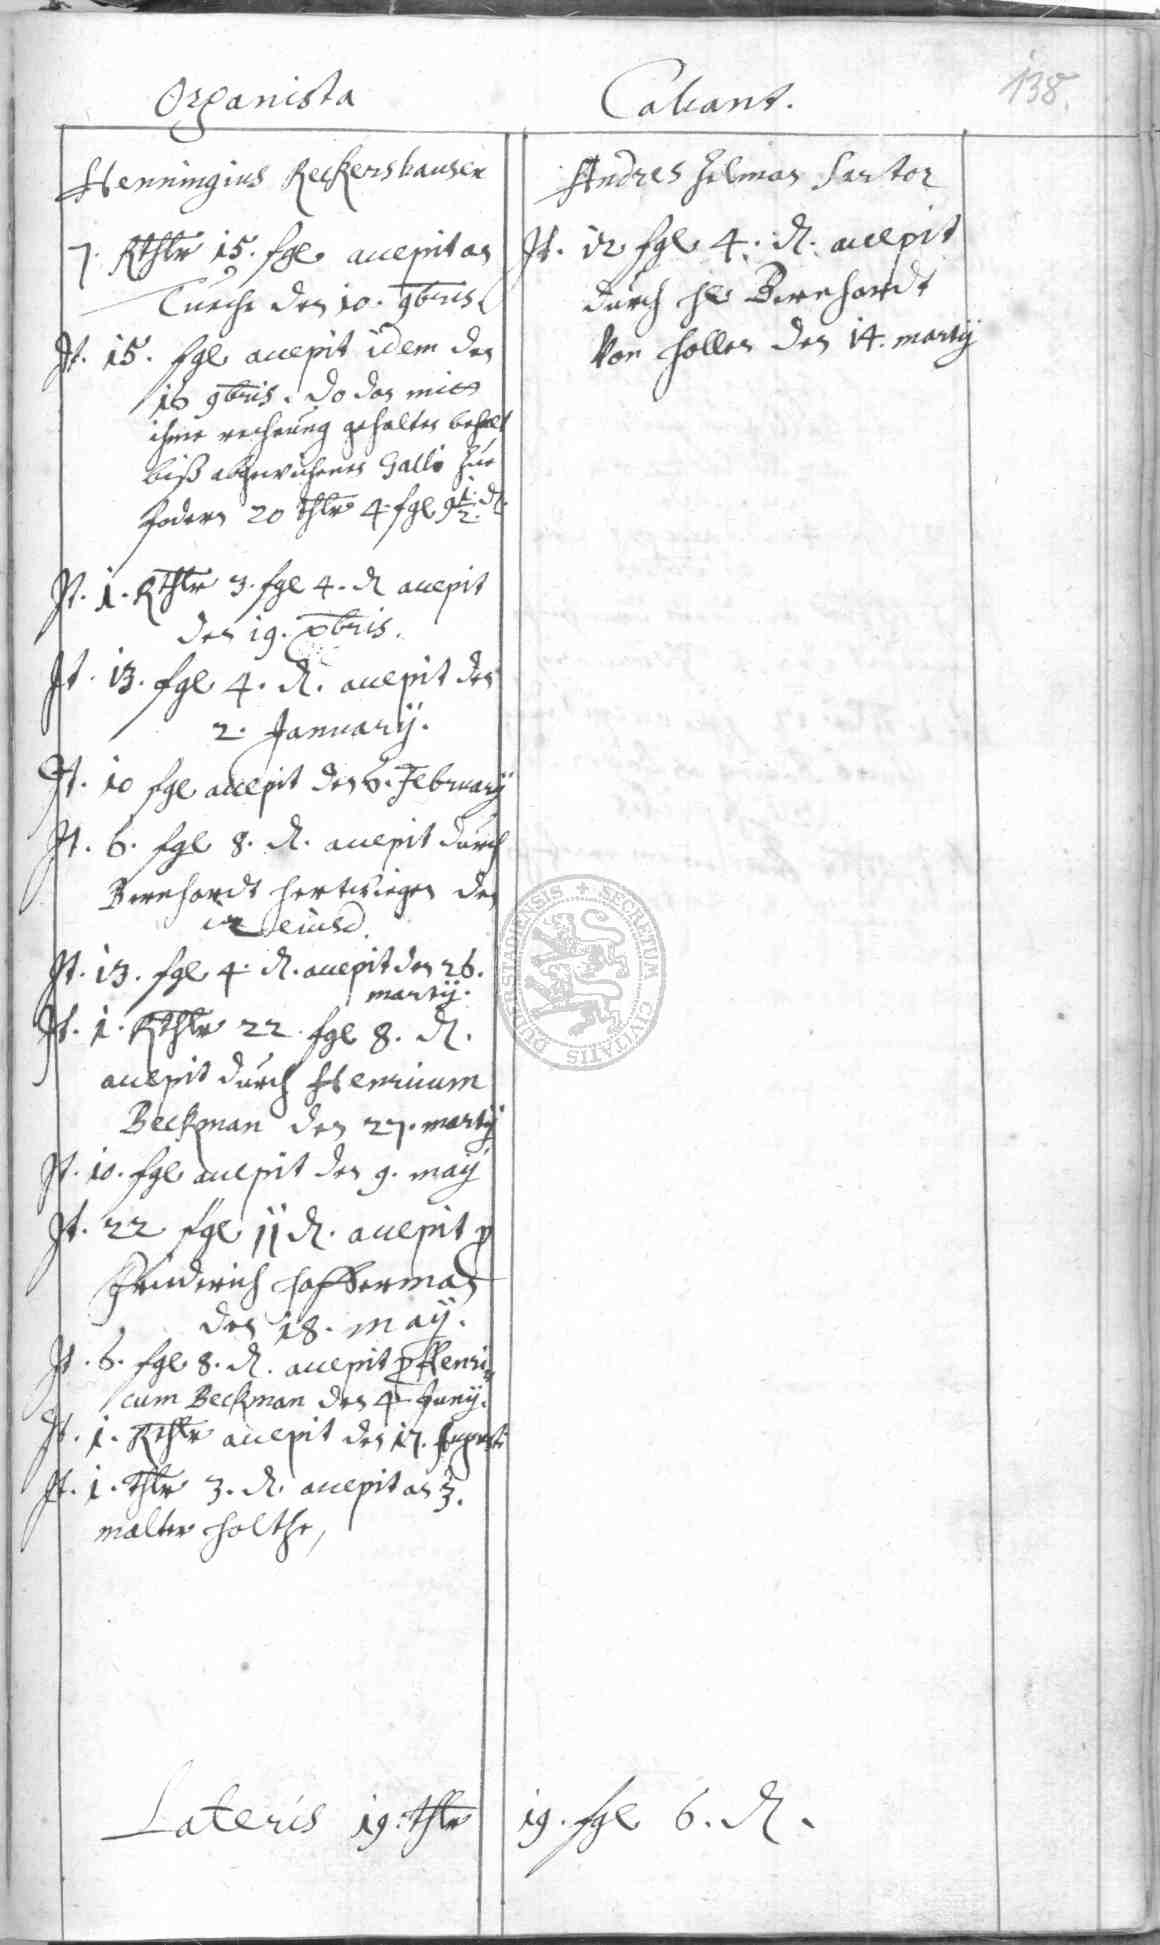 138.
Organista
Henningius Reckershausen
7. Rthlr 15. fgl accepit an
Tuche den 10. 9bris
It. 15. fgl accepit idem den
16 9bris. do dan mitt
ihme rechnung gehalten behelt
biß abgewichenen Galli zue
fodern 20 thlr 4 fgl 9 1/2 d.
It. 1. Rthlr 3. fgl 4. d accepit
den 19. xbris.
It. 13. fgl 4. d. accepit den
2. January.
It. 10 fgl accepit den 6. February
It. 6. fgl 8. d. accepit durch
Bernhardt Hertwiegen den
12 eiusd.
It. 13. fgl 4. d. accepit den 26.
martij.
It. 1. Rthlr 22. fgl 8. d.
accepit durch Henricum
Beckman den 27. martij
It. 10. fgl accepit den 9. maij
It. 22 fgl 11 d. accepit p
Friderich Hofferman
den 18. maij.
It. 6. fgl 8. d. accepit p Henri-
cum Beckman den 4 Junij.
It. 1. Rthlr accepit den 17. Augusti
It. 1. thlr 3. d. accepit an 3.
malter Holtze,
Calcant.
Andres Hilman Sartor
It. 12 fgl 4. d. accepit
durch H Bernhardt
Von Hollen den 14. martij
SECRETUM CIVITATIS DUDERSTADIENSIS
Lateris 19. thlr 19. fgl 6. d.